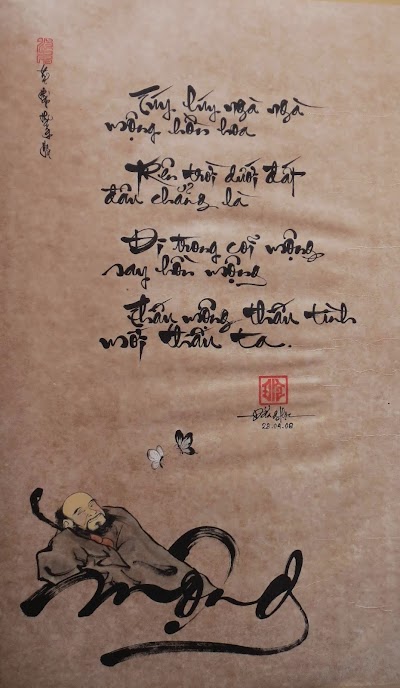 Túy lúy ngà ngà
mộng hồn hoa
Trên trời dưới đất
đâu chẳng là
Đi trong cõi mộng
say hồn mộng
Thấu mộng thấu tình
mới thấu ta.
mộng